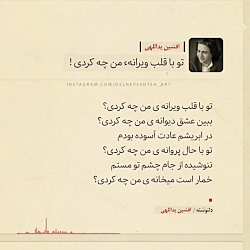 افشین یداللهی
تو با قلب ویرانهء من چه کردی !
تو با قلب ویرانه ی من چه کردی؟
ببین عشق دیوانه ی من چه کردی؟
در ابریشم عادت آسوده بودم
تو با حال پروانه ی من چه کردی؟
ننوشیده از جام چشم تو مستم
خمار است میخانه ی من چه کردی؟
دلنوشته / افشین یداللهی